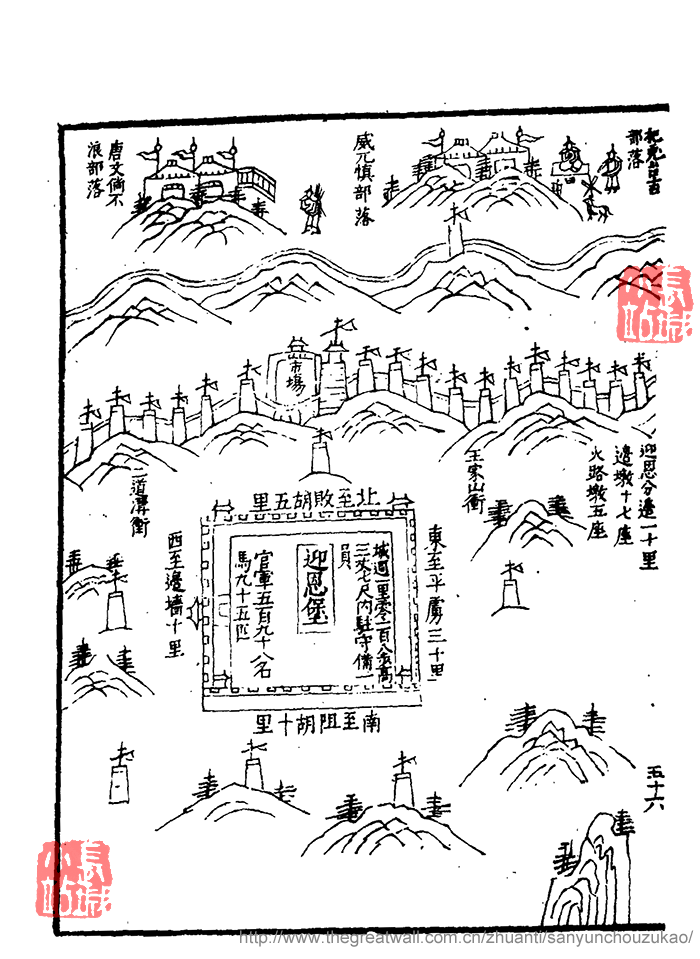 部落
威元慎部落
唐文倘不
浪部落
市場
迎恩分邊一十里
邊墩十七座
火路墩五座
王家山衝
二道溝衝
北至敗胡五里
東至平虜三十里
城週一里零一百八步高
三丈七尺內駐守備一
員
迎恩堡
官軍五百九十八名
馬九十五匹
西至邊墻十里
南至阻胡十里
五十六
長城
小站
長城
小站
http://www.thegreatwall.com.cn/zhuanti/sanyunchouzukao/